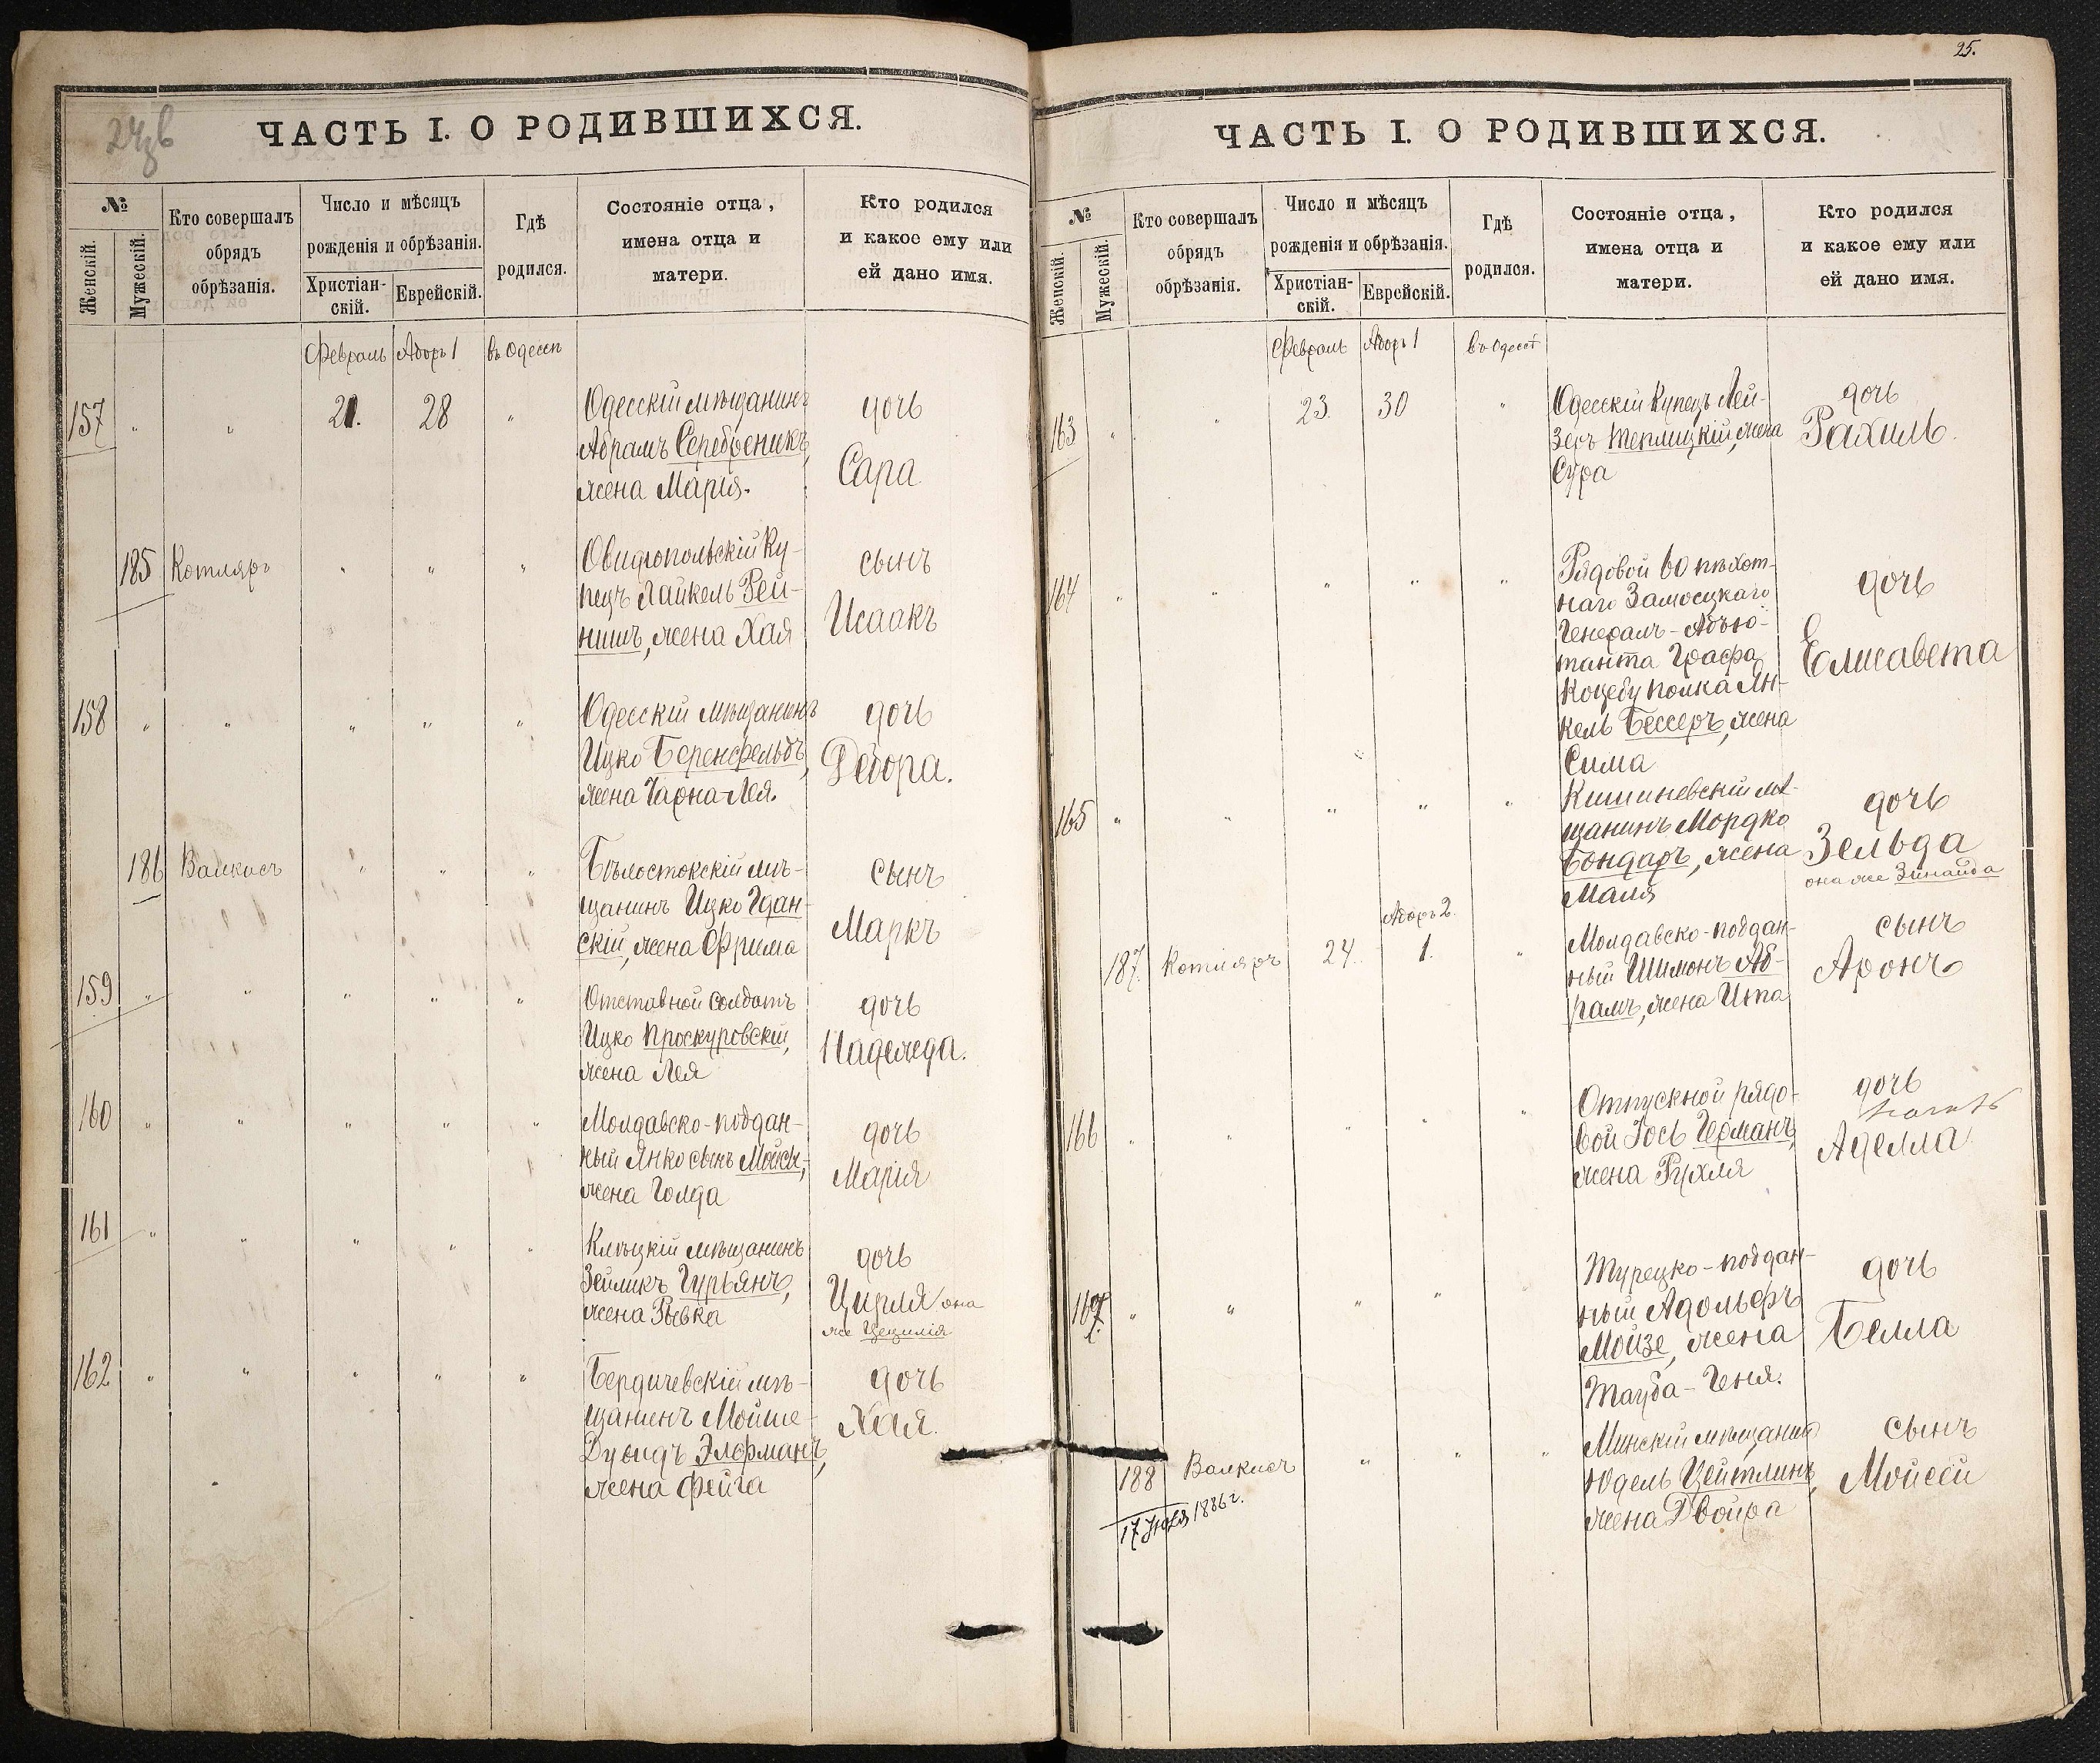 ЧАСТЬ I. О РОДИВШИХСЯ.
№
Женскій.
Мужескій.
Кто совершалъ
обрядъ
обрѣзанія.
Число и мѣсяцъ
рожденія и обрѣзанія.
Христіан-
скій.
Еврейскій.
Гдѣ
родился.
Состояніе отца,
имена отца и
матери.
Кто родился
и какое ему или
ей дано имя.
Февраль Адоръ 1 въ Одессѣ
157 " " 21. 28 "
Одесскій мѣщанинъ
Абрамъ Серебреникъ,
жена Марія.
дочь
Сара
185 Котляръ " " "
Овидіопольскій Ку-
пецъ Хайкель Рей-
нишъ, жена Хая
сынъ
Исаакъ
158 " " " " "
Одесскій мѣщанинъ
Ицко Беренсфельдъ,
жена Чарна-Лея.
дочь
Дебора.
186 Валкисъ " " "
Бѣлостокскій мѣ-
щанинъ Ицко Гдан-
скій, жена Фрима
сынъ
Маркъ
159 " " " " "
Отставной солдатъ
Ицко Проскуровскій,
жена Лея
дочь
Надежда.
160 " " " " "
Молдавско-поддан-
ный Янко сынъ Мойсы,
жена Голда
дочь
Марія
161 " " " " "
Клѣцкій мѣщанинъ
Зейликъ Гурьянъ,
жена Рывка
дочь
Цирля она
же Цецилія
162 " " " " "
Бердичевскій мѣ-
щанинъ Мойше-
Дувидъ Элфманъ,
жена Фейга
дочь
Хая.
25.
ЧАСТЬ I. О РОДИВШИХСЯ.
№
Женскій.
Мужескій.
Кто совершалъ
обрядъ
обрѣзанія.
Число и мѣсяцъ
рожденія и обрѣзанія.
Христіан-
скій.
Еврейскій.
Гдѣ
родился.
Состояніе отца,
имена отца и
матери.
Кто родился
и какое ему или
ей дано имя.
Февраль Адоръ 1 въ Одессѣ
163 " " 23. 30 "
Одесскій Купецъ Лей-
зеръ Теплицкій, жена
Сура
дочь
Рахиль.
164 " " " " "
Рядовой 60 пѣхот-
наго Замосцкаго
Генералъ-Адъю-
танта Графа
Коцебу полка Ян-
кель Бессеръ, жена
Сима
дочь
Елисавета
165 " " " " "
Кишиневскій мѣ-
щанинъ Мордко
Бондаръ, жена
Маля
дочь
Зельда
она же Зинаида
Адоръ 2.
187. Котляръ 24. 1. "
Молдавско-поддан-
ный Шимонъ Аб-
рамъ, жена Ита
сынъ
Аронъ
166 " " " " "
Отпускной рядо-
вой Іось Германъ,
жена Рухля
дочь
Аделла
167. " " " "
Турецко-поддан-
ный Адольфъ
Мойзе, жена
Тауба-Геня.
дочь
Белла
188 Валкисъ " " "
17 Іюля 1886 г.
Минскій мѣщанинъ
Юдель Цейтлинъ,
жена Двойра
сынъ
Мойсей